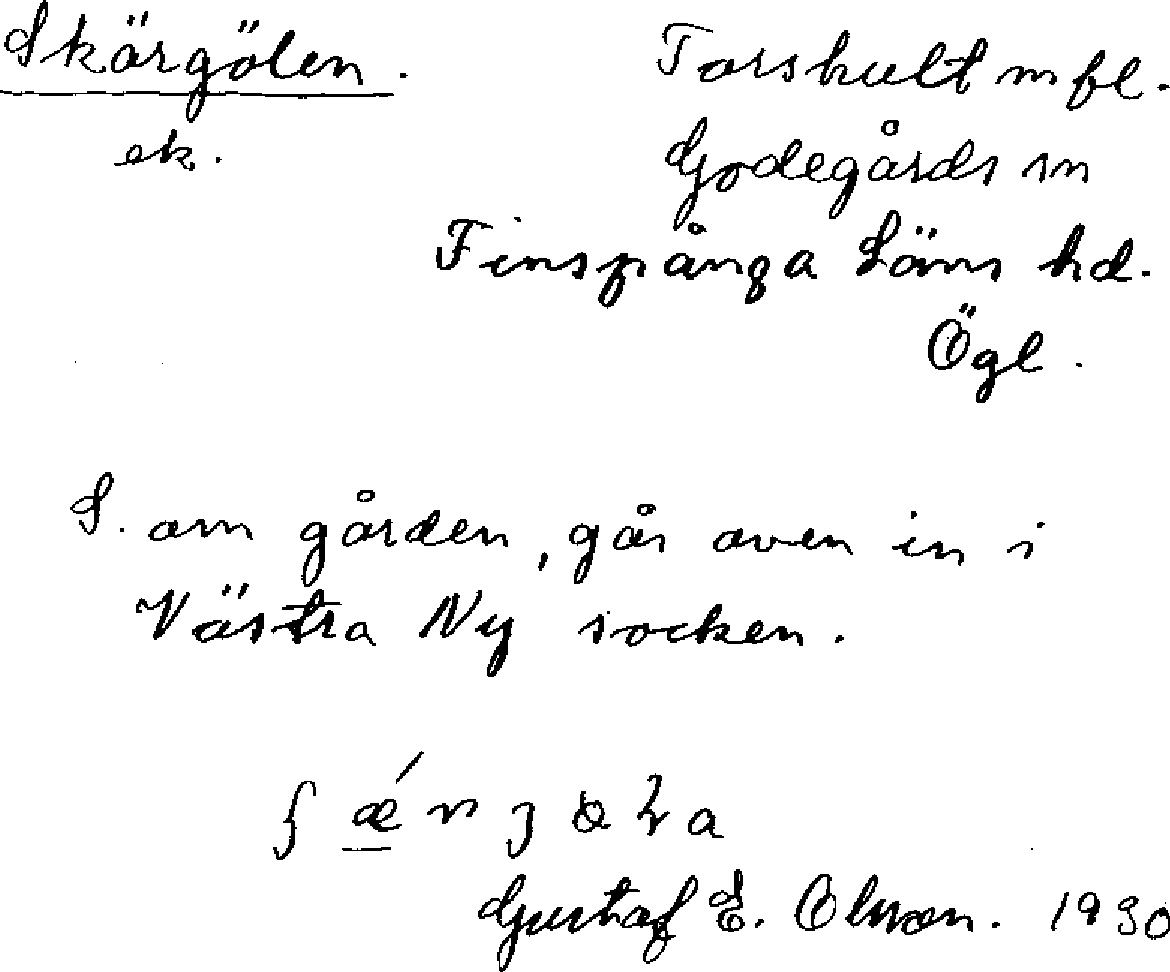 Skärgölen.
ek.
Torshult m fl.
Godegårds sn
Finspånga Läns hd.
Ögl.
S. om gården, går även in i
Västra Ny socken.
Gustaf E. Olsson. 1930